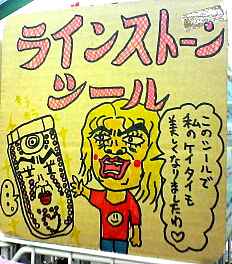 ラインストーン
シール
このシールで
私のケイタイも
美しくなりましたわ♡